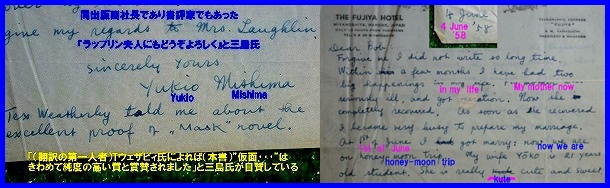 同出版社長であり書評家でもあった
give my regards to Mrs. Laughlin.
「ラップリン夫人にもどうぞよろしく」と三島氏
Sincerely Yours
Yukio Mishima
Yukio
Mishima
Tex Weatherby told me about the
excellent proof of „Mask" novel.
「(翻訳の第一人者)Tウェザビィ氏によれば(本書)"仮面・・・"は
きわめて純度の高い質と賞賛されました」と三島氏が自賛している
THE FUJIYA HOTEL
4 June
4 June
'58
'58
Dear Bob:
Forgive me I did not write so long time.
Within a few months I have had two
big happenings in my life. My mother
in my life
My mother now
seriously ill, and got
Now she
completely recovered. As soon as she
I became very busy to prepare my marriage.
At 1st of June I got marry: now we are
1st of June
now we are
on honey-moon trip. My wife YOKO is 21 years
honey-moon trip
old student. She is really cute and sweet
kute